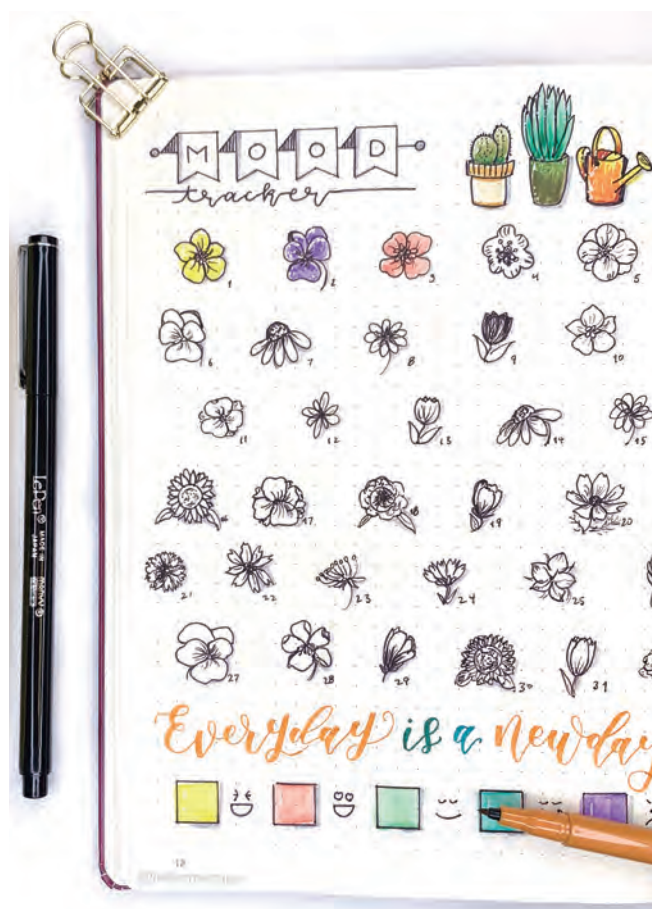 MOOD
tracker
1 2 3 4 5
6 7 8 9 10
11 12 13 14 15
16 17 18 19 20
21 22 23 24 25
27 28 29 30 31
Everyday is a newday
12
LePen
MADE IN
JAPAN